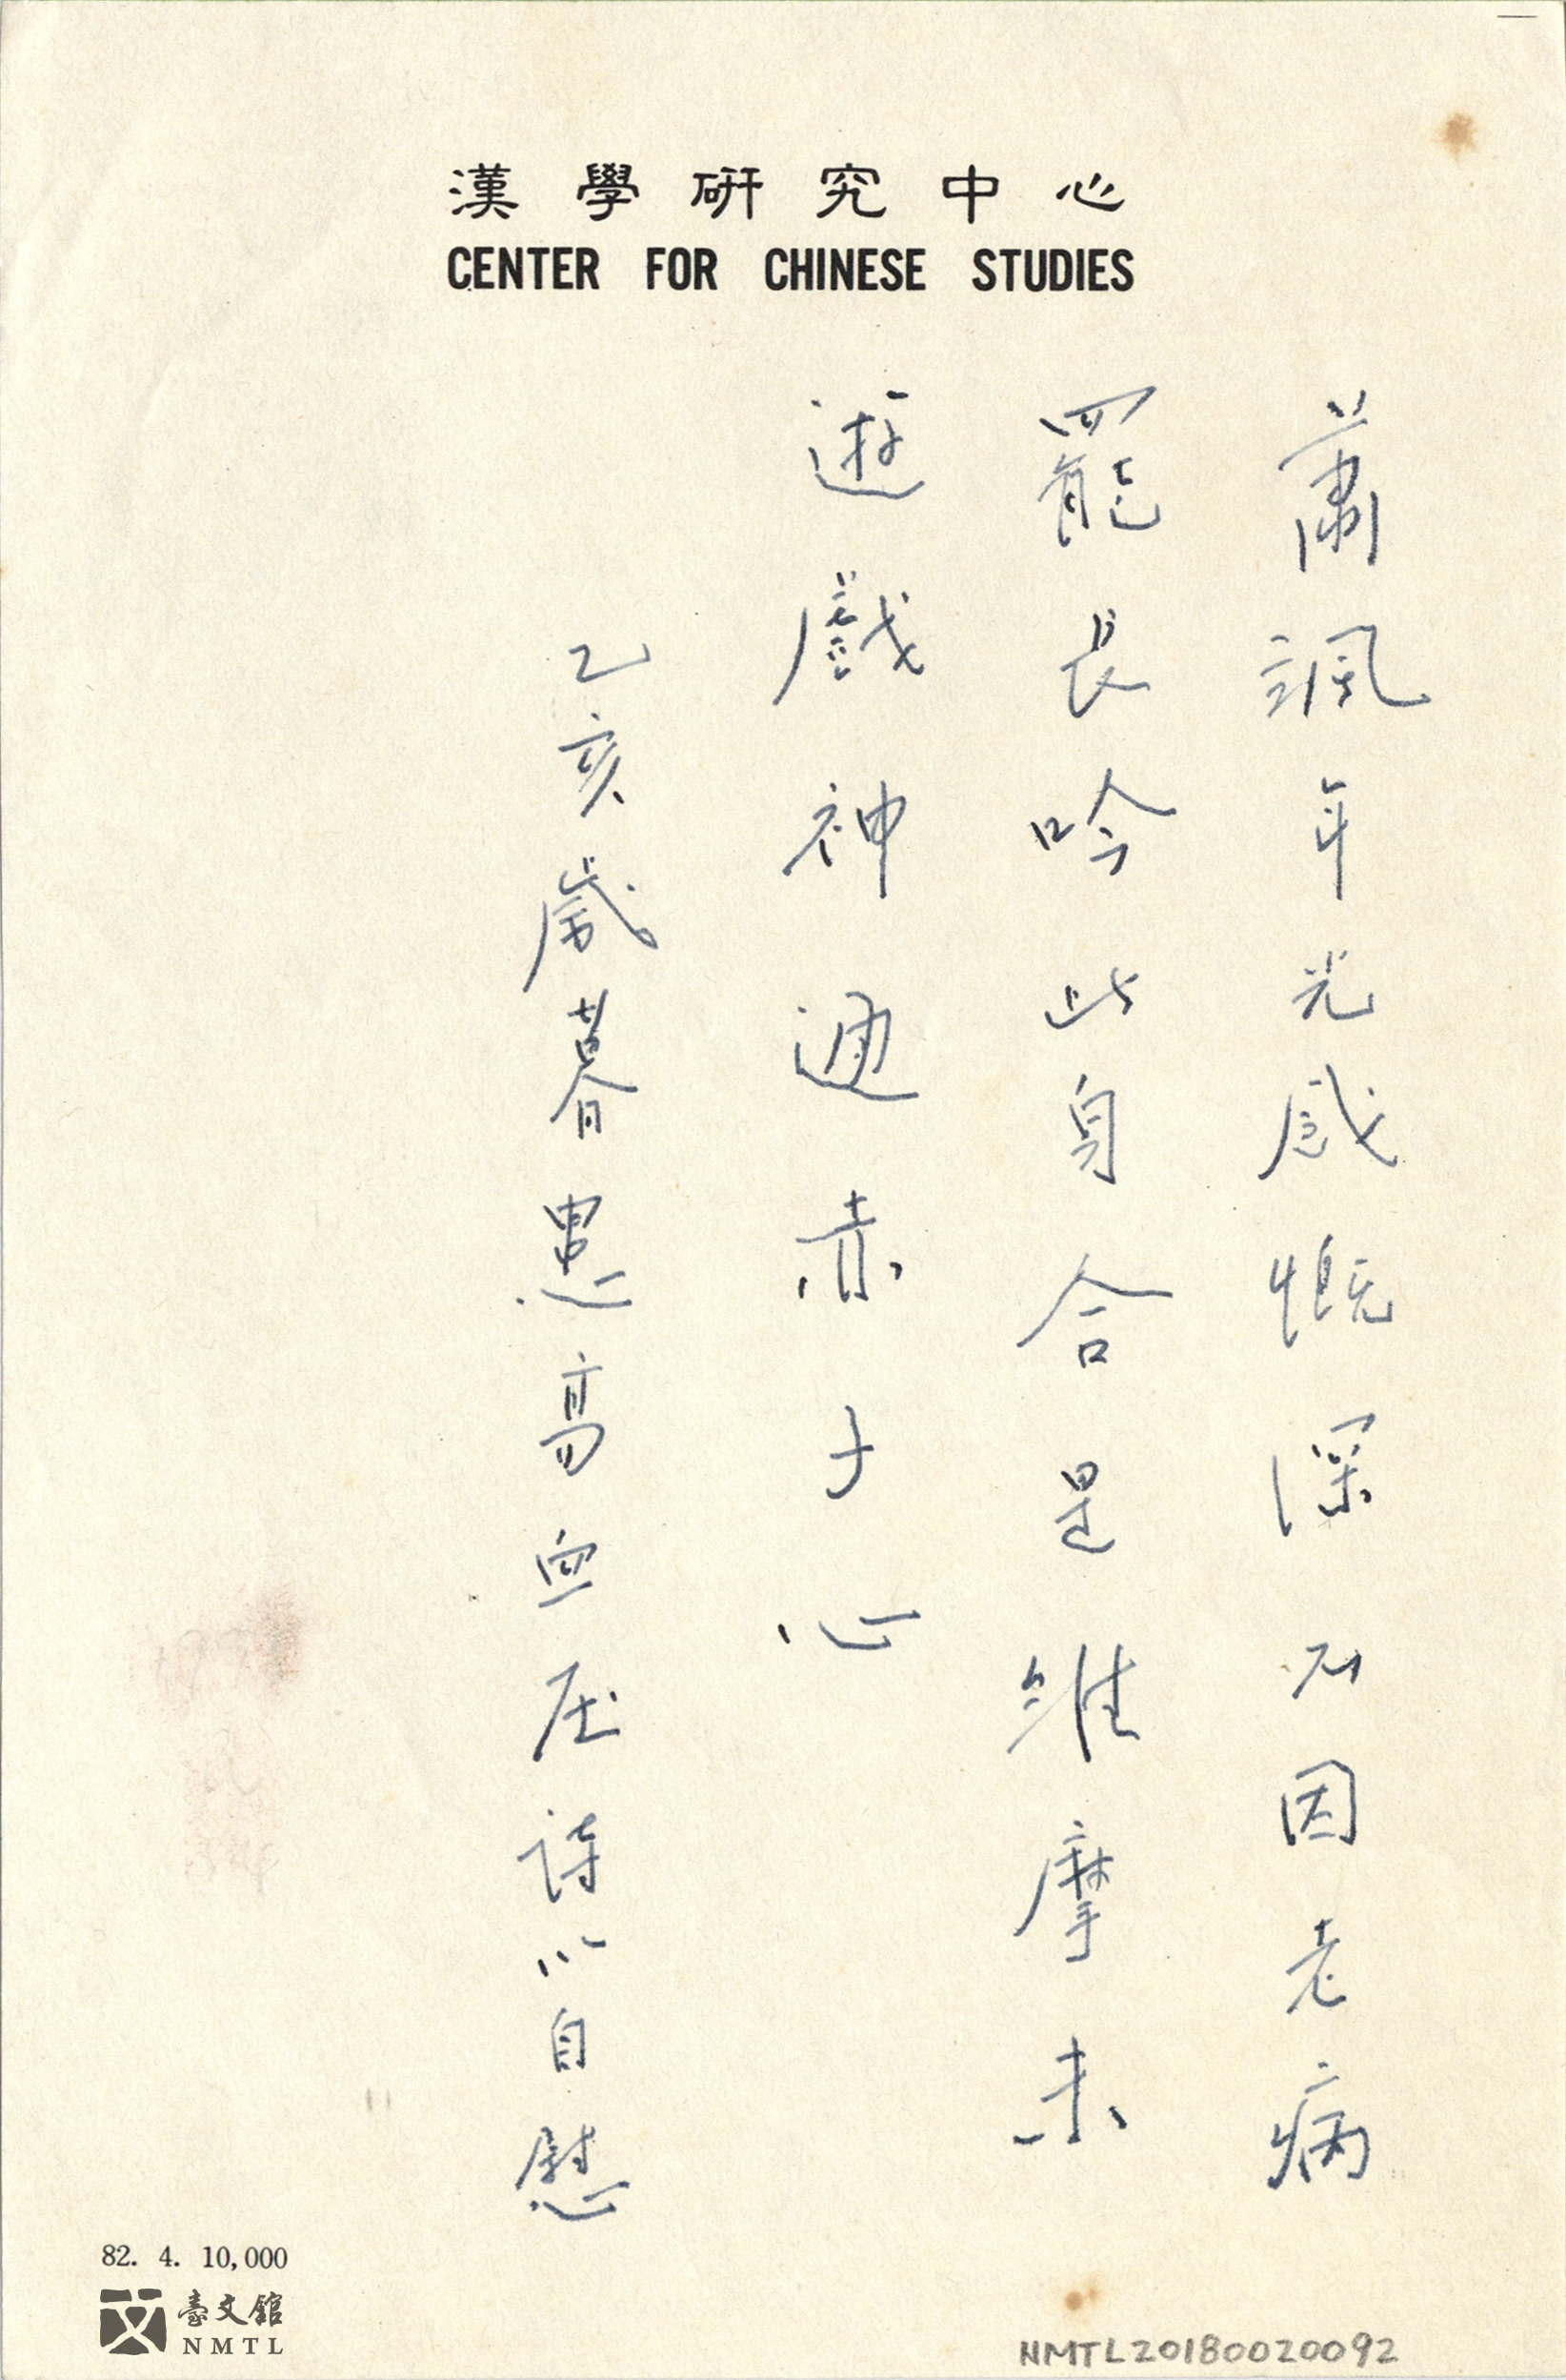 漢學研究中心
CENTER FOR CHINESE STUDIES
蕭颯年光感慨深不因老病
罷長吟此身合是維摩未
遊戲神通赤子心
乙亥歲暮患高血压詩以自慰
82. 4. 10,000
臺文館
NMTL
NMTL20180020092